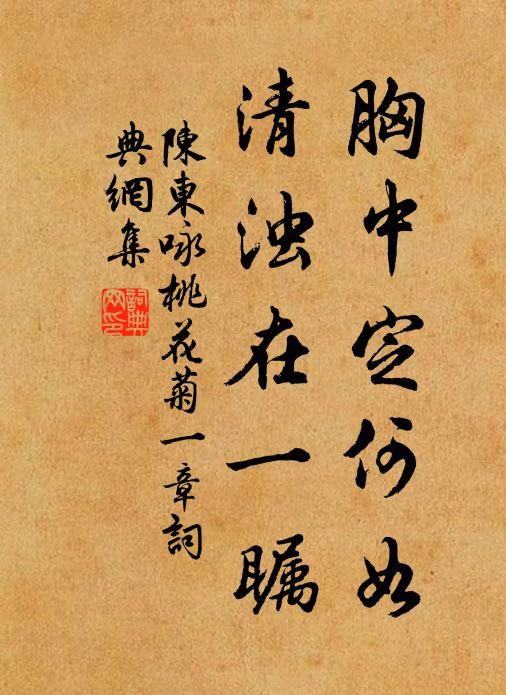 胸中定何如
清浊在一瞩
陳東咏桃花菊一章詞
典網集
詞典